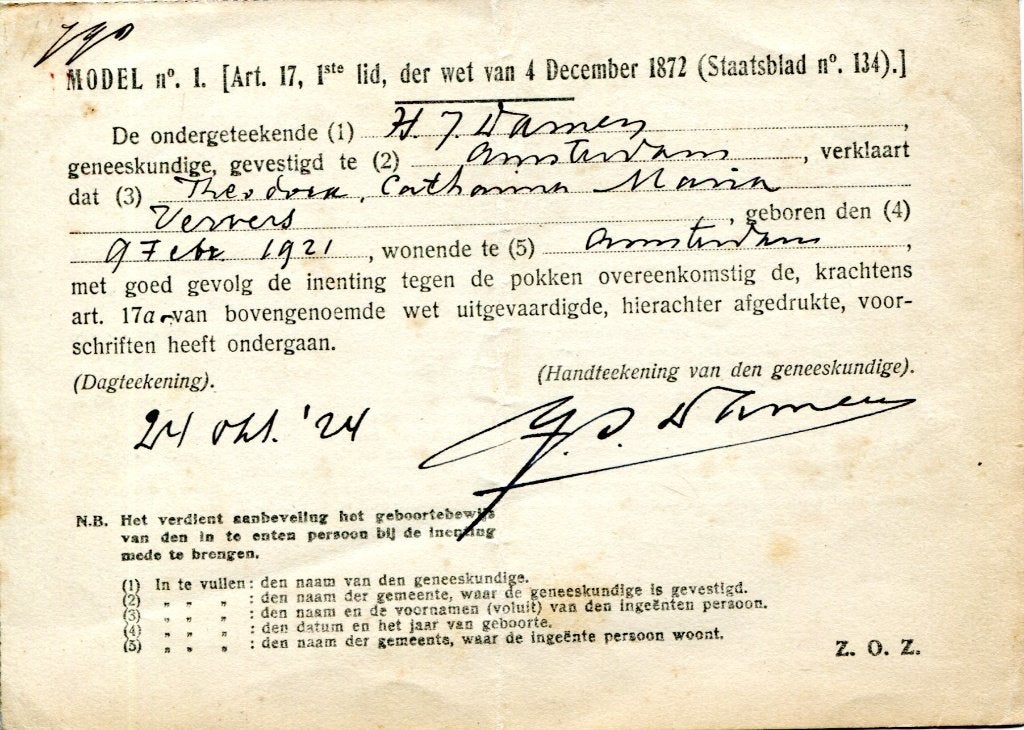 MODEL nº. 1. [Art. 17, 1ste lid, der wet van 4 December 1872 (Staatsblad nº. 134).]
De ondergeteekende (1) H. J. Damen,
geneeskundige, gevestigd te (2) Amsterdam, verklaart
dat (3) Theodora, Catharina Maria
Ververs, geboren den (4)
9 Febr 1921, wonende te (5) Amsterdam,
met goed gevolg de inenting tegen de pokken overeenkomstig de, krachtens
art. 17a van bovengenoemde wet uitgevaardigde, hierachter afgedrukte, voor-
schriften heeft ondergaan.
(Dagteekening). (Handteekening van den geneeskundige).
24 okt. '24 Damen
N.B. Het verdient aanbeveling het geboortebewijs
van den in te enten persoon bij de inenting
mede te brengen.
(1) In te vullen: den naam van den geneeskundige.
(2) „ „ „ : den naam der gemeente, waar de geneeskundige is gevestigd.
(3) „ „ „ : den naam en de voornamen (voluit) van den ingeënten persoon.
(4) „ „ „ : den datum en het jaar van geboorte.
(5) „ „ „ : den naam der gemeente, waar de ingeënte persoon woont.
Z. O. Z.